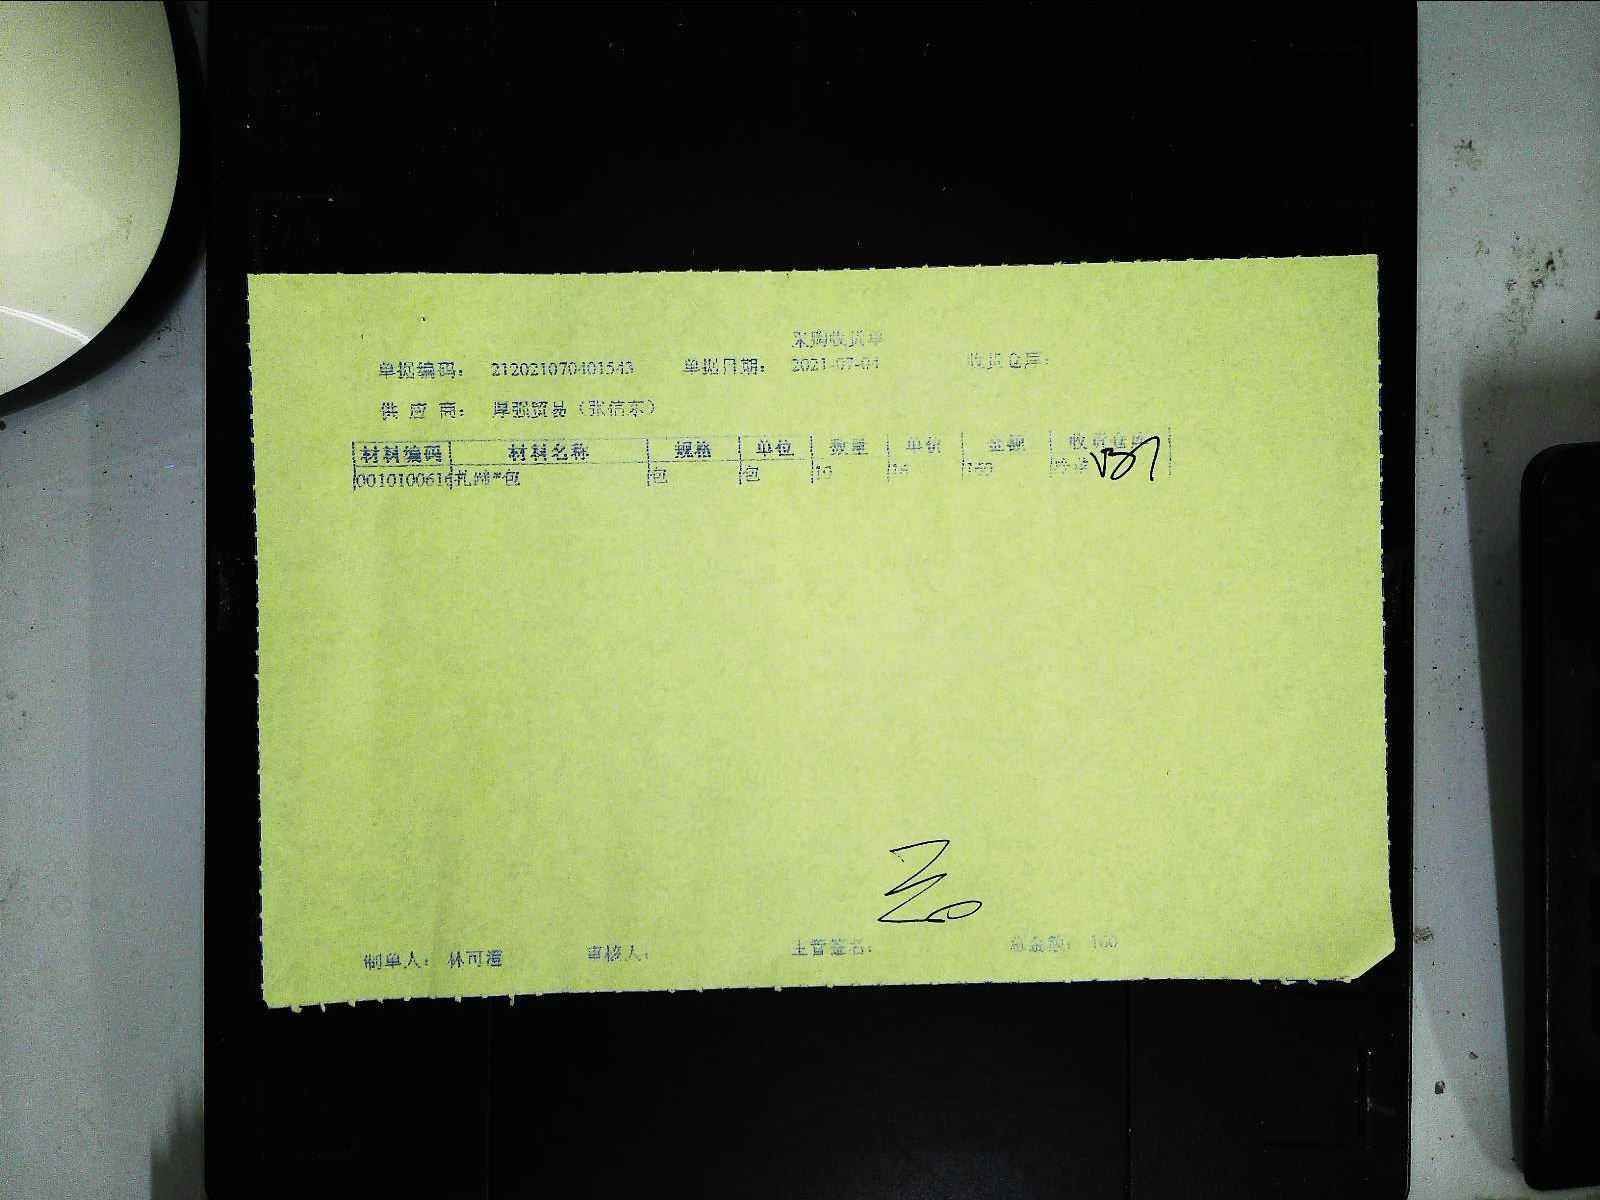 采购收货单
单据编码: 212021070401543 单据日期: 2021-07-04 收货仓库:
供 应 商: 厚强贸易（张信东）
材料编码 材料名称 规格 单位 数量 单价 金额 收货仓库
0010100616 扎啤*包 包 包 10 16 160
制单人: 林可澄 审核人: 主管签名: 总金额: 160